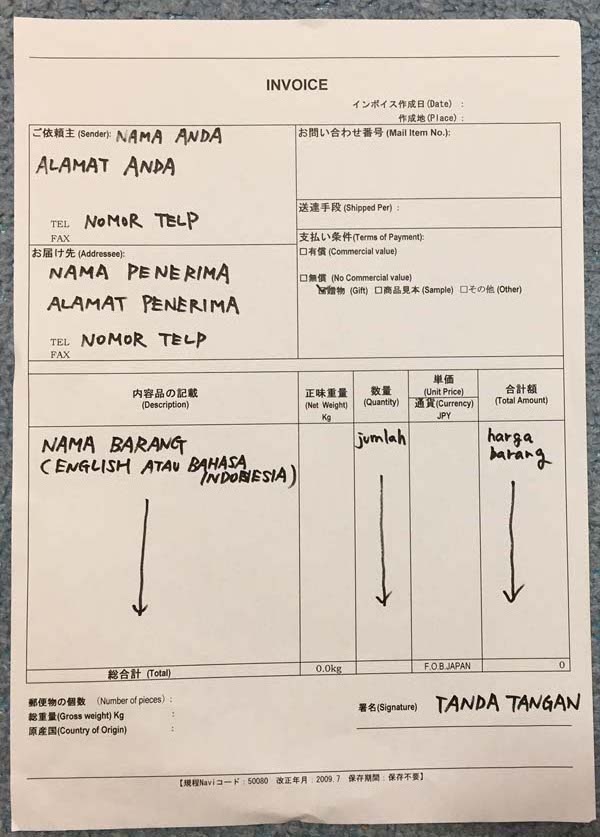 INVOICE
インボイス作成日(Date) :
作成地(Place) :
ご依頼主 (Sender): NAMA ANDA
ALAMAT ANDA
TEL NOMOR TELP
FAX
お問い合わせ番号 (Mail Item No.):
送達手段 (Shipped Per) :
お届け先 (Addressee):
NAMA PENERIMA
ALAMAT PENERIMA
TEL NOMOR TELP
FAX
支払い条件(Terms of Payment):
□有償 (Commercial value)
□無償 (No Commercial value)
☑贈物 (Gift) □商品見本 (Sample) □その他 (Other)
内容品の記載
(Description)
正味重量
(Net Weight)
Kg
数量
(Quantity)
単価
(Unit Price)
通貨(Currency)
JPY
合計額
(Total Amount)
NAMA BARANG
(ENGLISH ATAU BAHASA
INDONESIA)
jumlah
harga
barang
総合計 (Total) 0.0kg F.O.B.JAPAN 0
郵便物の個数 (Number of pieces) :
総重量(Gross weight) Kg :
原産国(Country of Origin) :
署名(Signature) TANDA TANGAN
【規程Naviコード：50080 改正年月：2009.7 保存期間：保存不要】